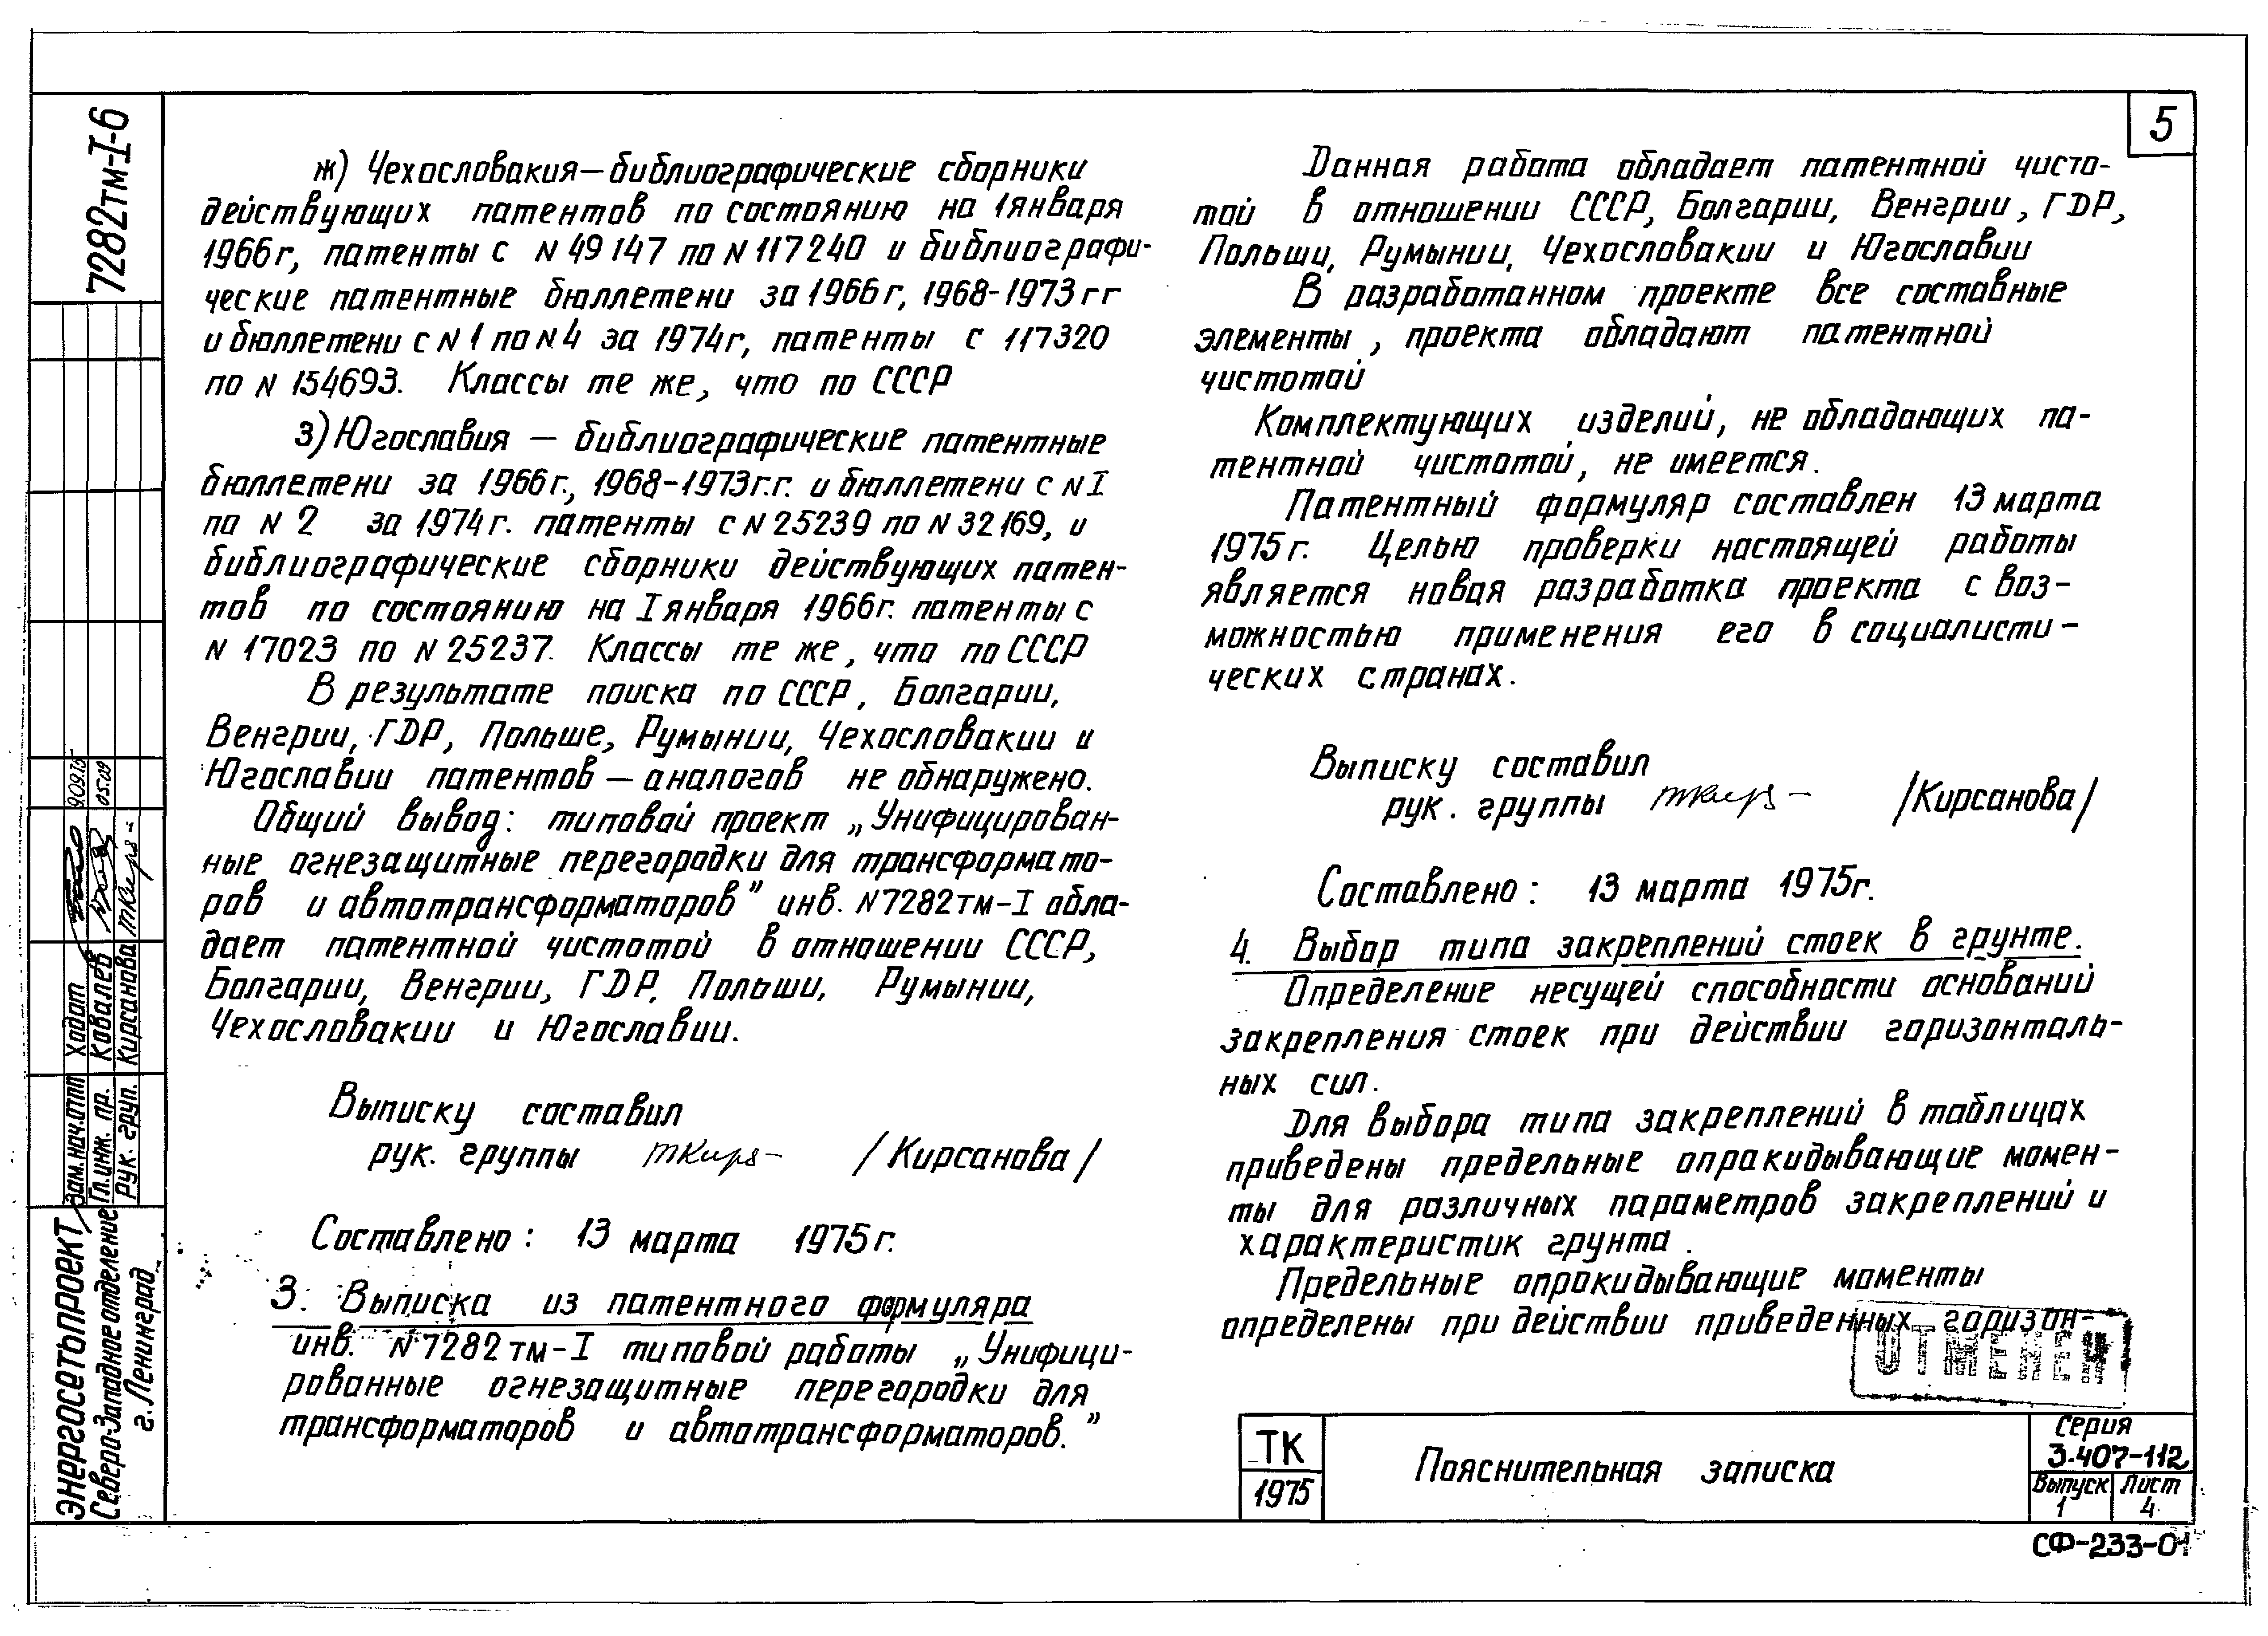 5
7282тм-I-6
ж) Чехословакия—библиографические сборники
действующих патентов по состоянию на 1января
1966г, патенты с N 49147 по N 117240 и библиографи-
ческие патентные бюллетени за 1966г, 1968-1973гг
и бюллетени с N 1 по N 4 за 1974г, патенты с 117320
по N 154693. Классы те же, что по СССР
З) Югославия — библиографические патентные
бюллетени за 1966г., 1968-1973г.г. и бюллетени с N I
по N 2 за 1974г. патенты с N 25239 по N 32169, и
библиографические сборники действующих патен-
тов по состоянию на I января 1966г. патенты с
N 17023 по N 25237. Классы те же, что по СССР
В результате поиска по СССР, Болгарии,
Венгрии, ГДР, Польше, Румынии, Чехословакии и
Югославии патентов — аналогов не обнаружено.
Общий вывод: типовой проект „Унифицирован-
ные огнезащитные перегородки для трансформато-
ров и автотрансформаторов" инв. N7282тм-I обла-
дает патентной чистотой в отношении СССР,
Болгарии, Венгрии, ГДР, Польши, Румынии,
Чехословакии и Югославии.
Выписку составил
рук. группы /Кирсанова/
Составлено: 13 марта 1975г.
3. Выписка из патентного формуляра
инв. N7282тм-I типовой работы „Унифици-
рованные огнезащитные перегородки для
трансформаторов и автотрансформаторов."
Данная работа обладает патентной чисто-
той в отношении СССР, Болгарии, Венгрии, ГДР,
Польши, Румынии, Чехословакии и Югославии
В разработанном проекте все составные
элементы, проекта обладают патентной
чистотой
Комплектующих изделий, не обладающих па-
тентной чистотой, не имеется.
Патентный формуляр составлен 13 марта
1975г. Целью проверки настоящей работы
является новая разработка проекта с воз-
можностью применения его в социалисти-
ческих странах.
Выписку составил
рук. группы /Кирсанова/
Составлено: 13 марта 1975г.
4. Выбор типа закреплений стоек в грунте.
Определение несущей способности оснований
закрепления стоек при действии горизонталь-
ных сил.
Для выбора типа закреплений в таблицах
приведены предельные опрокидывающие момен-
ты для различных параметров закреплений и
характеристик грунта.
Предельные опрокидывающие моменты
определены при действии приведенных горизон-
ОТМЕНЕН
Зам.нач.отп Ходот 9.09.75
Гл.инж. пр. Ковалев 05.09
Рук. груп. Кирсанова
ЭНЕРГОСЕТЬПРОЕКТ
Северо-Западное отделение
г. Ленинград
ТК
1975
Пояснительная записка
Серия
3.407-112
Выпуск Лист
1 4
СФ-233-01